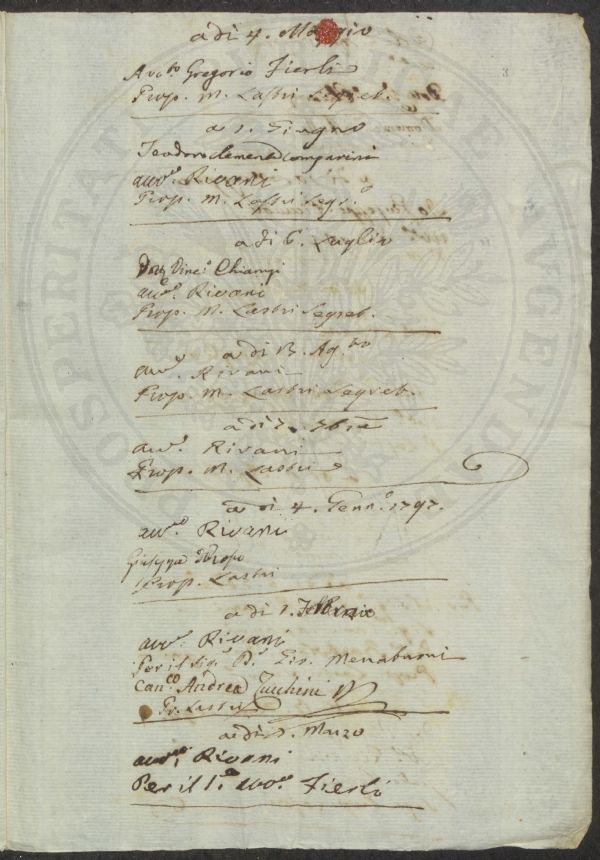 a dì 4. Maggio
Avv.to Gregorio Fierli
Prop. M. Lastri Segret.
a 1. Giugno
Teodoro Clemente Comparini
avv.o Rivani
Prop. M. Lastri Segr.o
a dì 6. Luglio
Dott. Vinc.o Chiarugi
avv.o Rivani
Prop. M. Lastri Segret.
a dì 3. Ag.to
avv.o Rivani
Prop. M. Lastri Segret.
a dì 7. 7bre
avv.o Rivani
Prop. M. Lastri
a dì 4. Genn.o 1797.
avv.to Rivani
Giuseppe
Prop. Lastri
a dì 1. Febbraio
avv.o Rivani
Per il Sig.r D.r Gio. Menabuoni
Can.co Andrea Zucchini
Pr. Lastri
a dì 1. Marzo
avv.to Rivani
Per il S.e avv.o Fierli